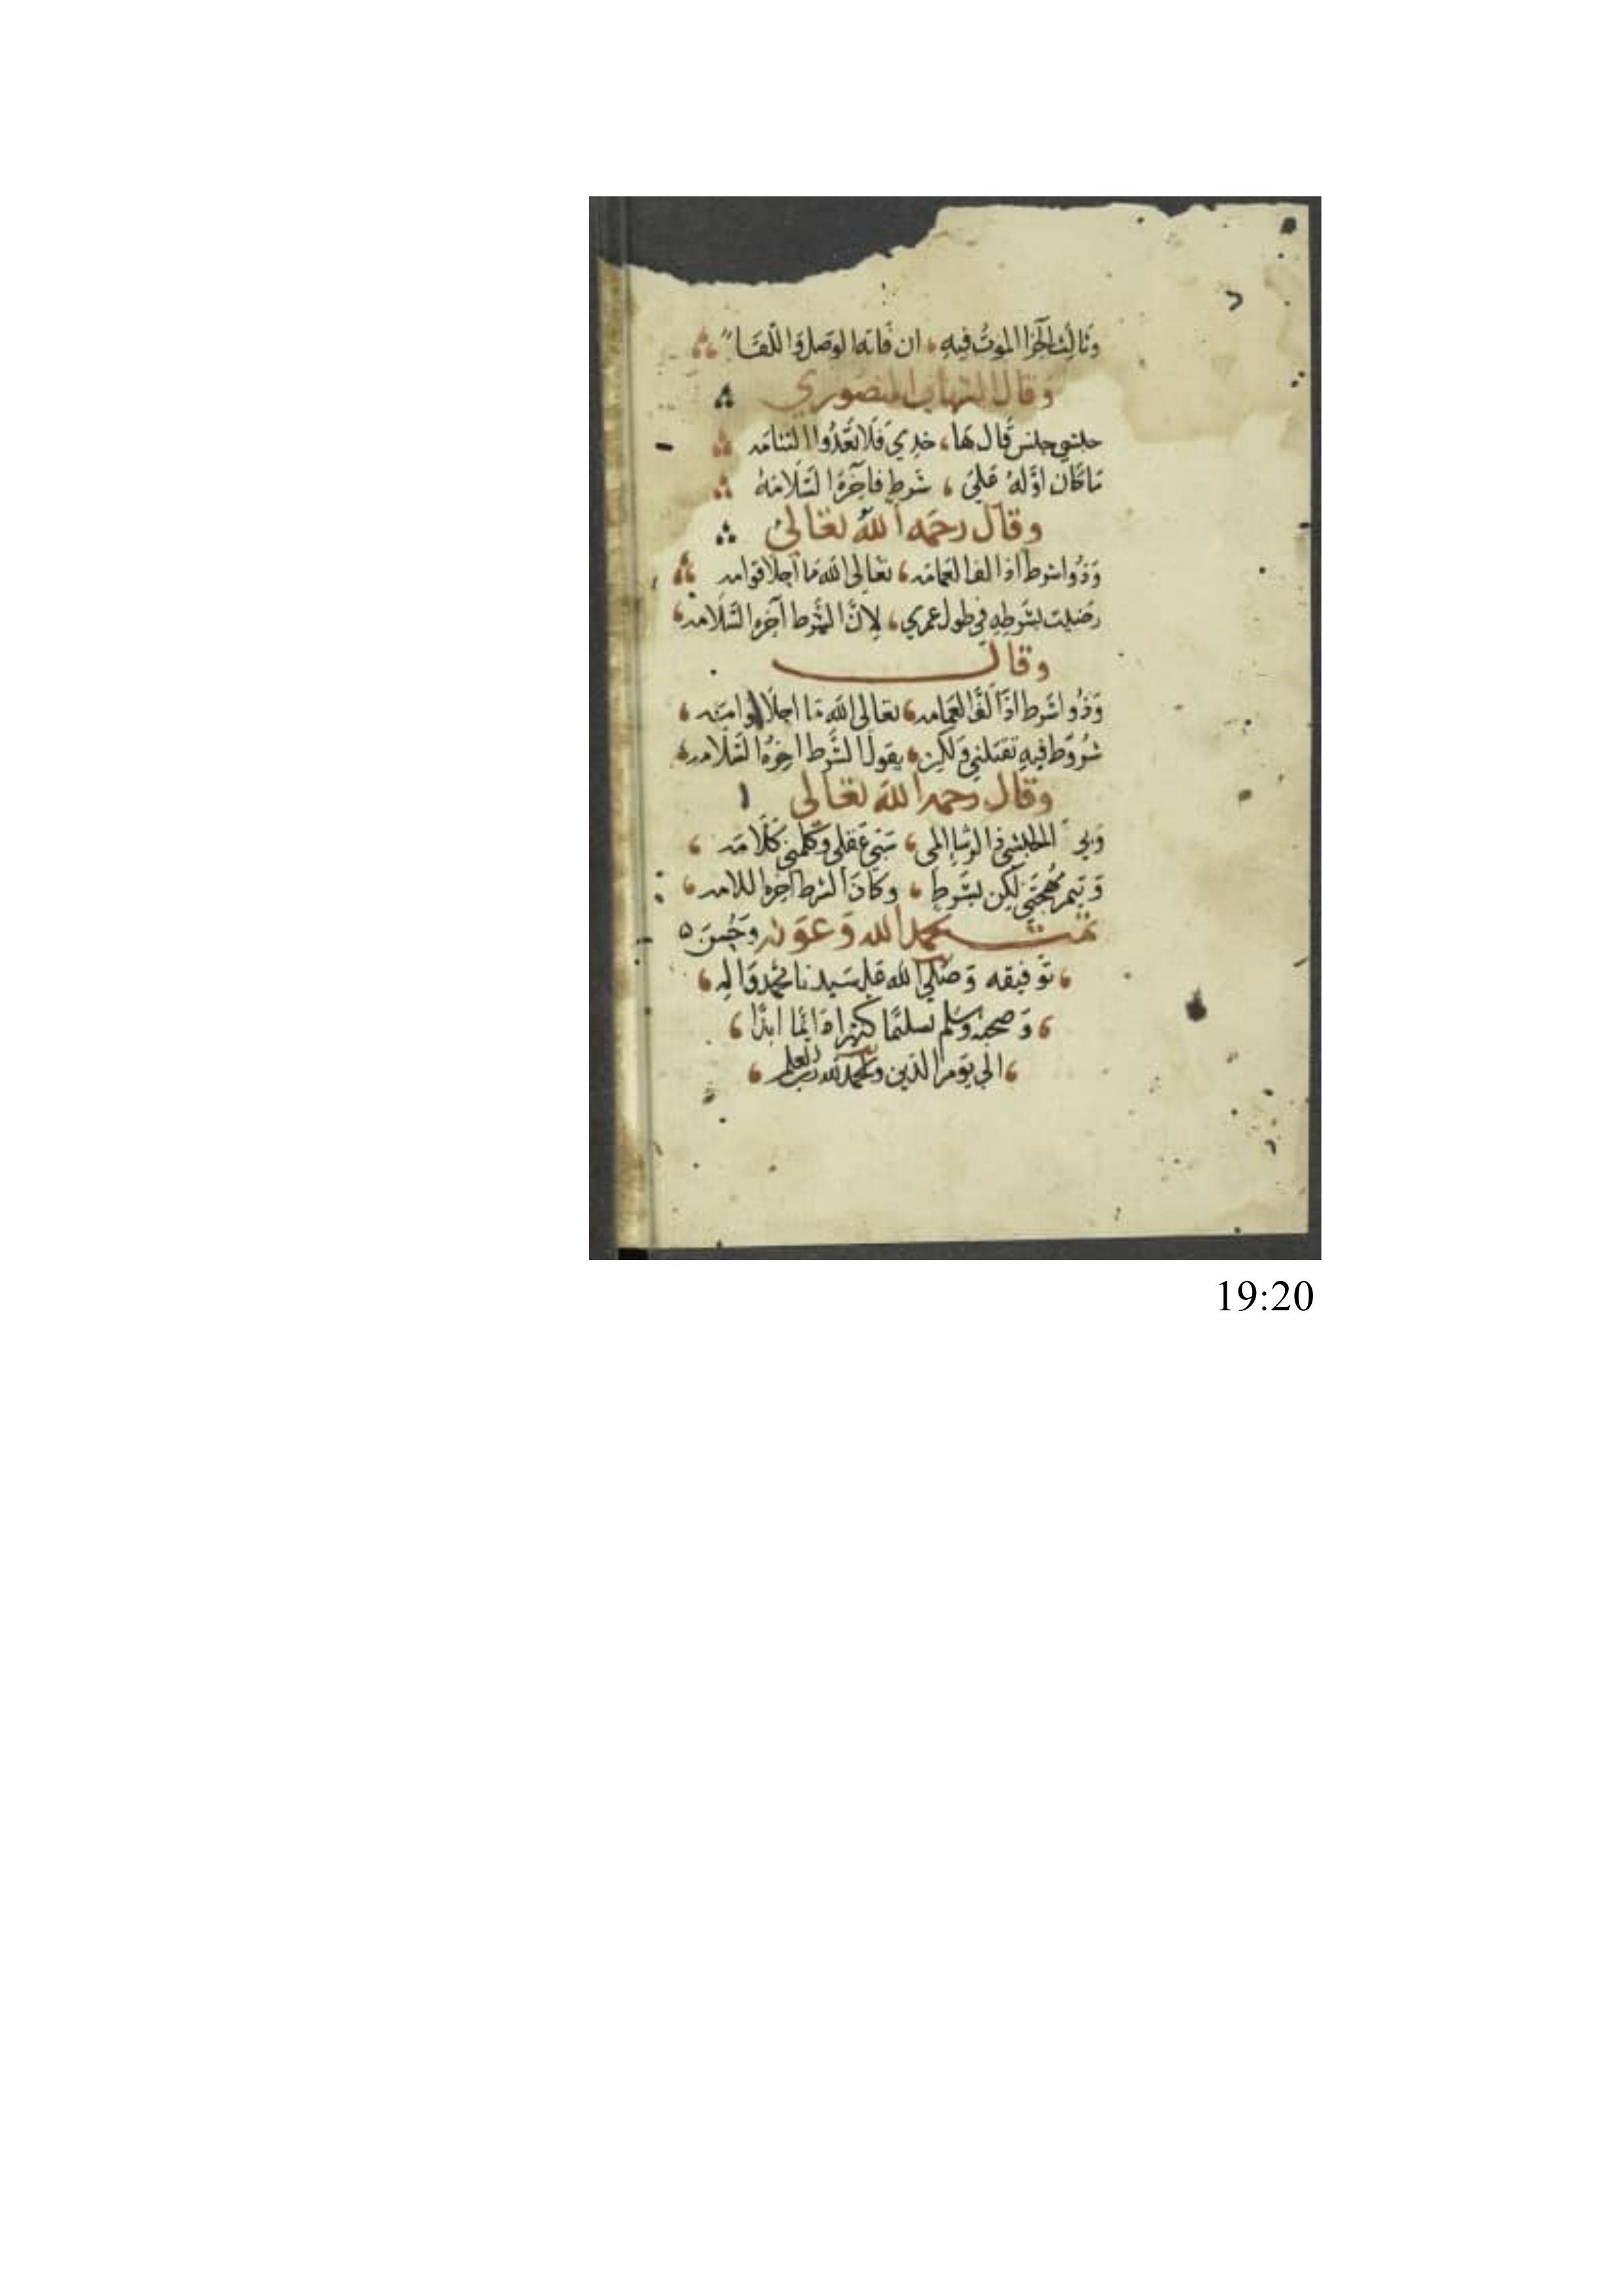 وثالث الجزا الموت فيه ، ان فاته الوصل واللقا
وقال الشهاب المنصوري
حبشي جنس قال ها ، خدي فلا تعدوا التنامه
ما كان اوله علي ، شرط فاخره السلامه
وقال رحمه الله تعالى
وذوا شرط اذا لف العمامه ، تعالى الله ما احلا قوامه
رضيت بشرطه في طول عمري ، لان الشرط آخره السلامه
وقال
وذوا شرط اذا لف العمامه ، تعالى الله ما احلا قوامه
شروط فيه تقتلني ولكن ، يقول الشرط اخره السلامه
وقال رحمه الله تعالى
الحبشي ذا الرشا المي ، سبى عقلي وكلمني كلامه
وتيم مهجتي لكن بشرط ، وكان الشرط اخره اللامه
تمت بحمد الله وعونه وحسن
توفيقه وصلى الله على سيدنا محمد واله
وصحبه وسلم تسليما كثيرا دائما ابدا
الي يوم الدين والحمد لله رب العلم
19:20